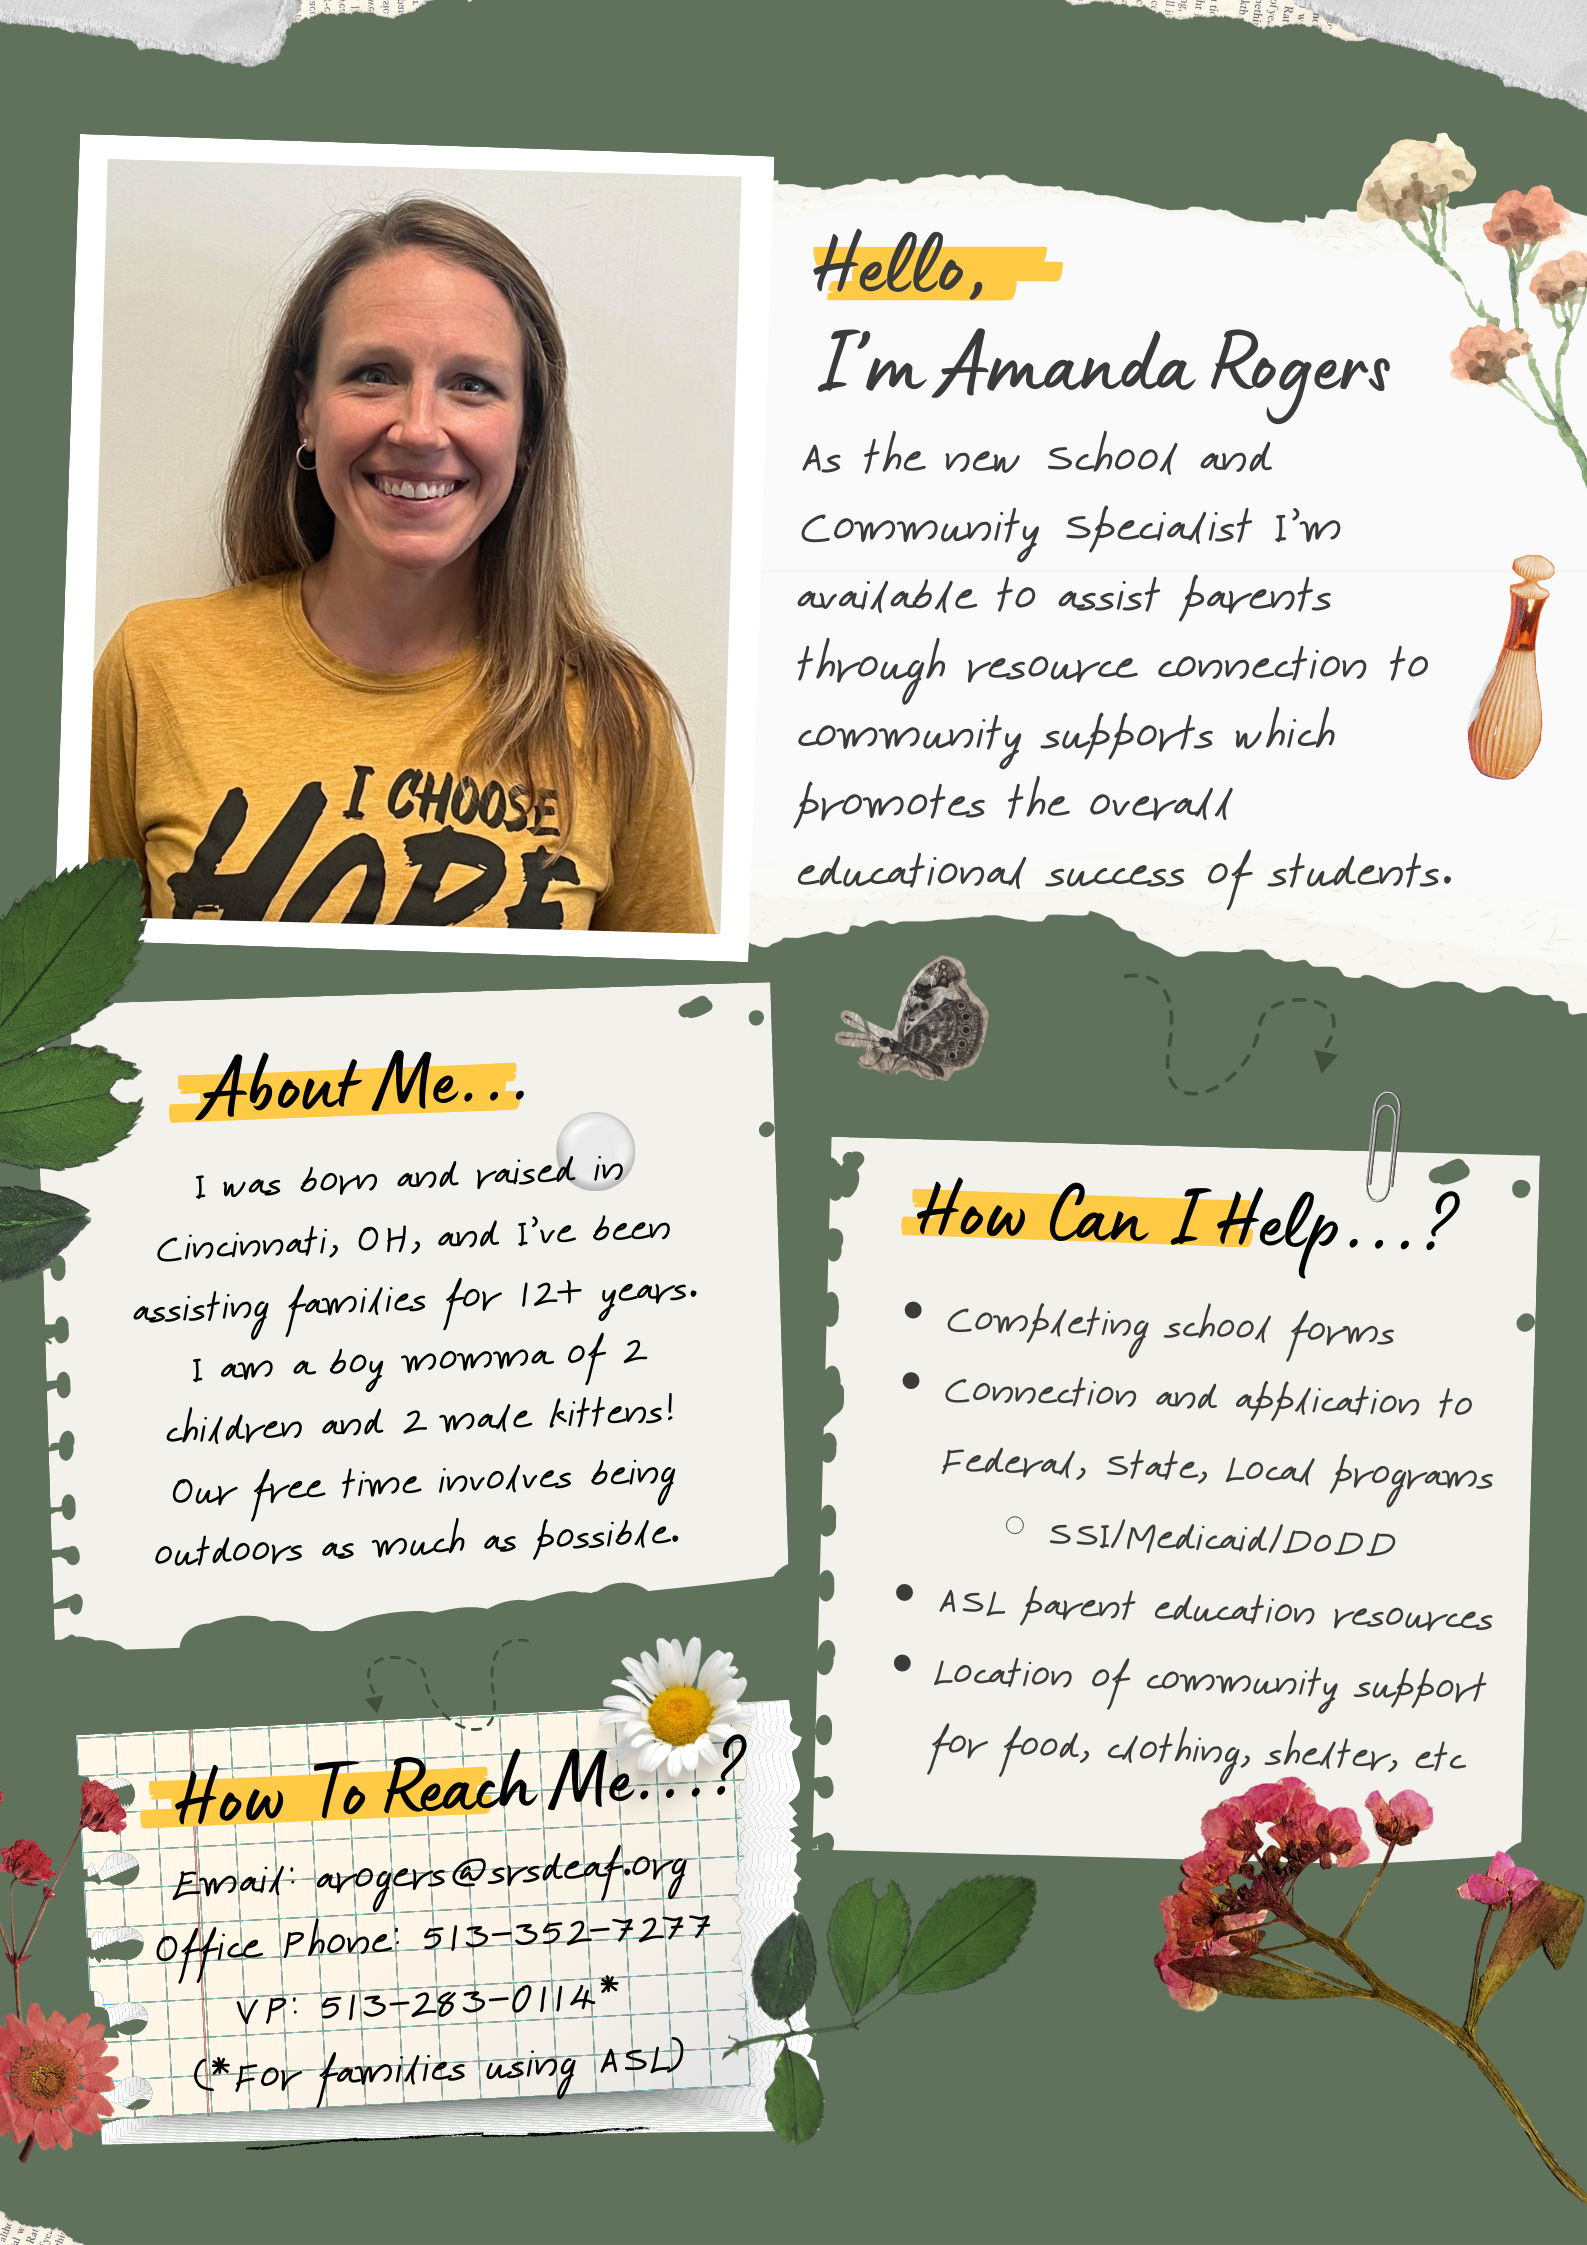 Hello,
I'm Amanda Rogers
As the new School and
Community Specialist I'm
available to assist parents
through resource connection to
community supports which
promotes the overall
educational success of students.
I CHOOSE
HOPE
About Me...
I was born and raised in
Cincinnati, OH, and I've been
assisting families for 12+ years.
I am a boy momma of 2
children and 2 male kittens!
Our free time involves being
outdoors as much as possible.
How Can I Help...?
• Completing school forms
• Connection and application to
Federal, State, Local programs
○ SSI/Medicaid/DoDD
• ASL parent education resources
• Location of community support
for food, clothing, shelter, etc
How To Reach Me...?
Email: arogers@srsdeaf.org
Office Phone: 513-352-7277
VP: 513-283-0114*
(*For families using ASL)